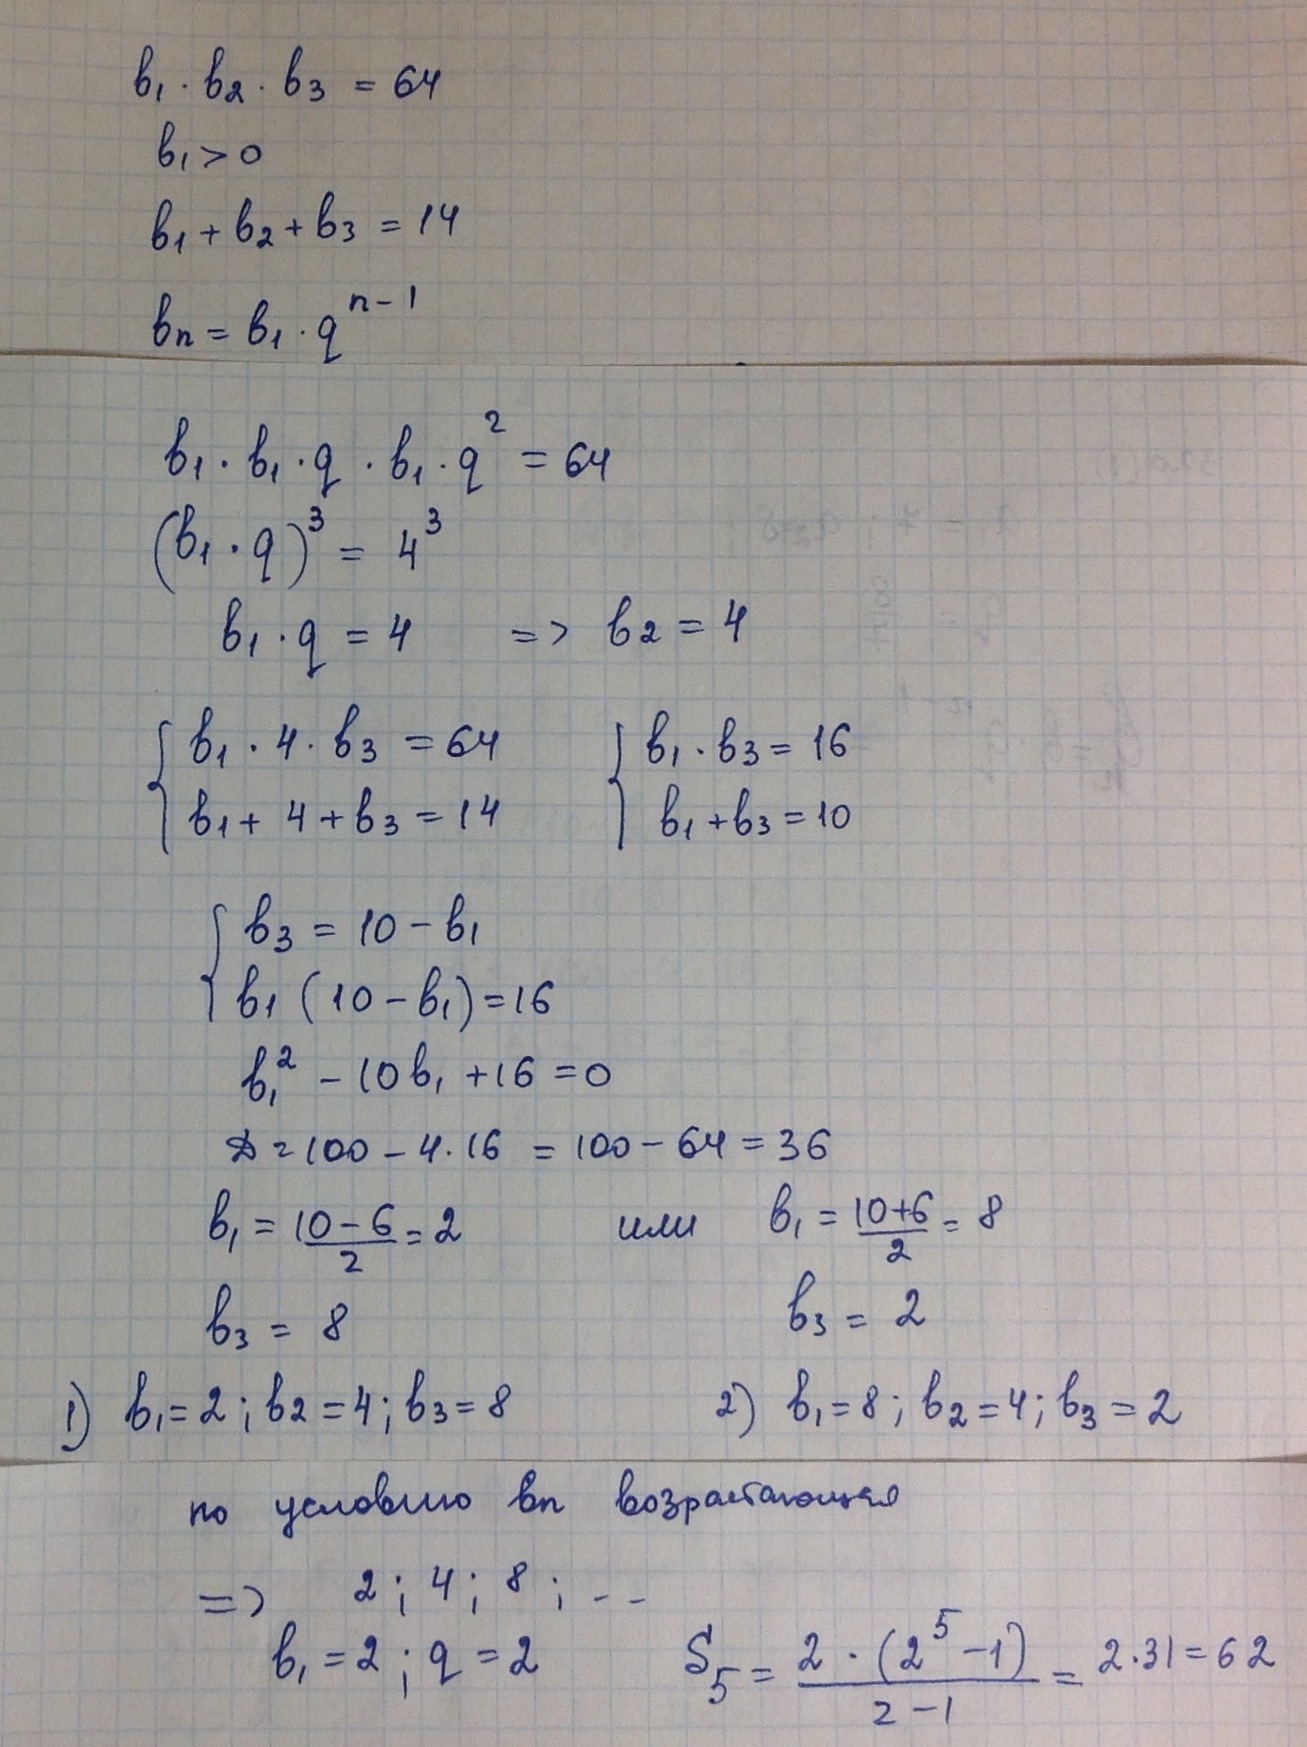 b₁ · b₂ · b₃ = 64
b₁ > 0
b₁ + b₂ + b₃ = 14
bₙ = b₁ · qⁿ⁻¹
b₁ · b₁ · q · b₁ · q² = 64
(b₁ · q)³ = 4³
b₁ · q = 4 => b₂ = 4
{ b₁ · 4 · b₃ = 64 { b₁ · b₃ = 16
b₁ + 4 + b₃ = 14 b₁ + b₃ = 10
{ b₃ = 10 - b₁
b₁ (10 - b₁) = 16
b₁² - 10b₁ + 16 = 0
D = 100 - 4·16 = 100 - 64 = 36
b₁ = (10-6)/2 = 2 или b₁ = (10+6)/2 = 8
b₃ = 8 b₃ = 2
1) b₁=2; b₂=4; b₃=8 2) b₁=8; b₂=4; b₃=2
по условию bₙ возрастающая
=> 2; 4; 8; ...
b₁ = 2; q = 2 S₅ = 2·(2⁵-1)/(2-1) = 2·31 = 62